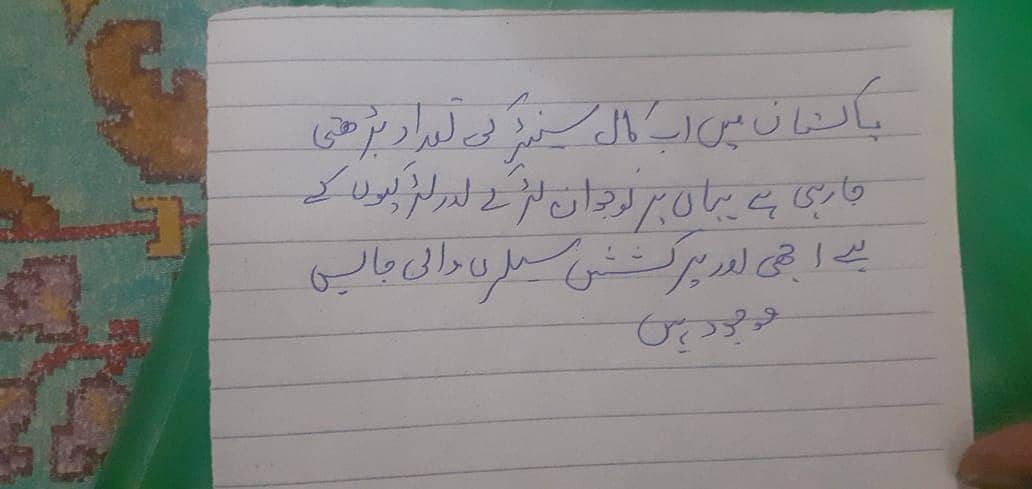 پاکستان میں اب کال سینٹر کی تعداد بڑھتی
جارہی ہے یہاں پر نوجوان لڑکے اور لڑکیوں کے
لیے اچھی اور پرکشش سیلری والی جابس
موجود ہیں